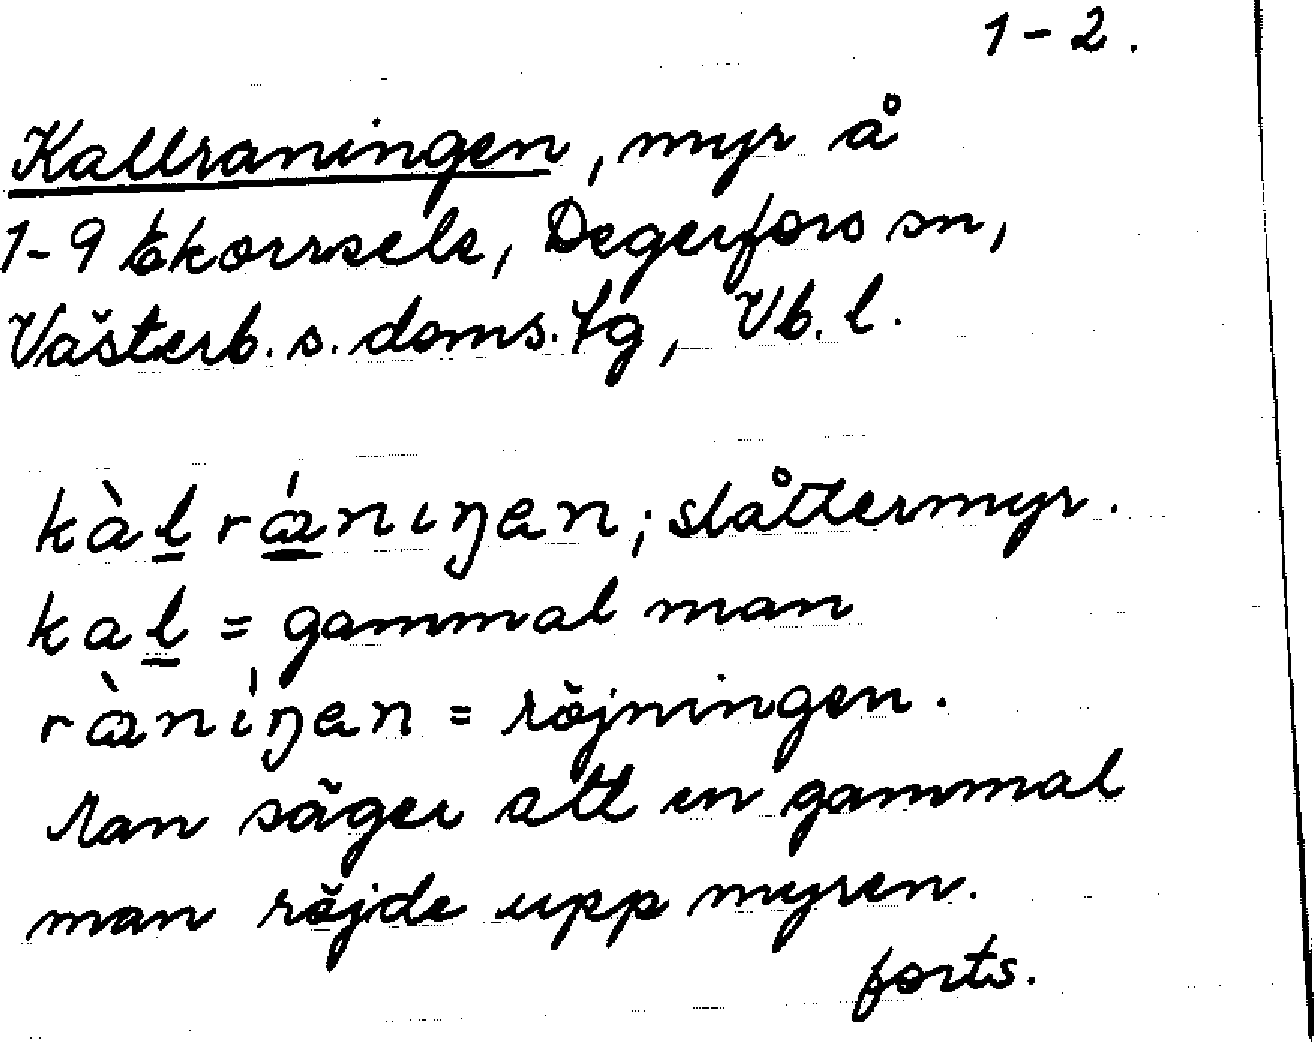 1-2.
Kallraningen, myr å
1-9 Ekorrsele, Degerfors sn,
Västerb. s. doms. tg, Vb. l.
kàl̲ rá̲niŋen; slåttermyr.
kal̲ = gammal man
ràníŋen = röjningen.
Man säger att en gammal
man röjde upp myren.
forts.